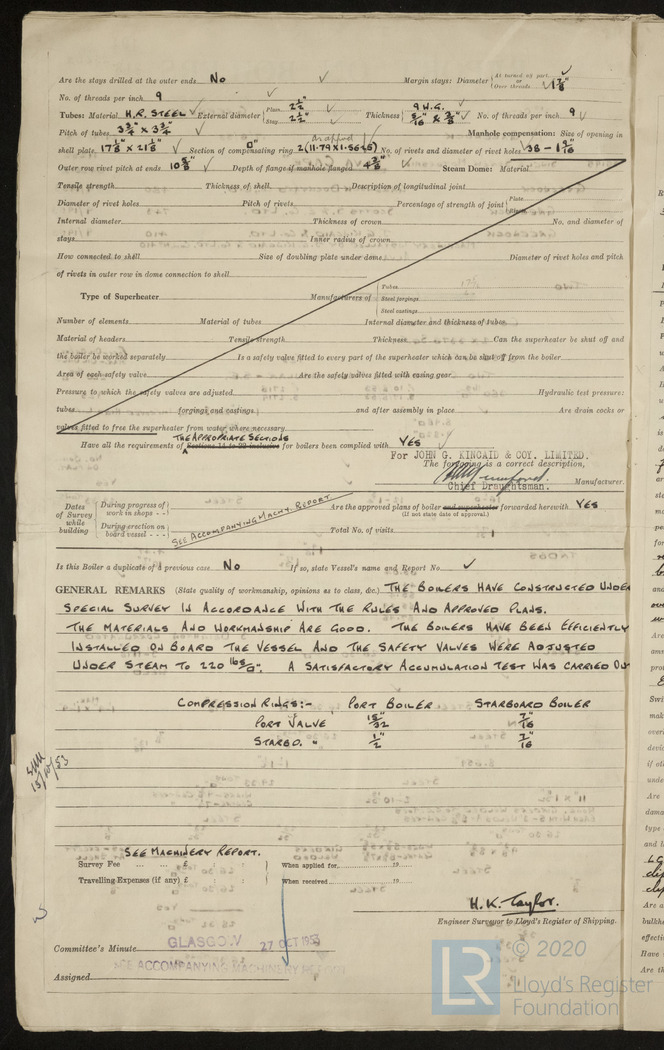 Are the stays drilled at the outer ends No Margin stays: Diameter { At turned off part, or Over threads 1 7/8"
No. of threads per inch 9
Tubes: Material H.R. STEEL External diameter { Plain 2 1/2" Stay 2 1/2" Thickness { 9 W.G. 5/16 & 3/8" No. of threads per inch 9
Pitch of tubes 3 3/4" x 3 3/4" Manhole compensation: Size of opening in
shell plate 17 1/8" x 21 1/8" Section of compensating ring 2(11.79 x 1.5625) No. of rivets and diameter of rivet holes 38 - 1 9/16"
Outer row rivet pitch at ends 10 5/8" Depth of flange if manhole flanged 4 3/8" Steam Dome: Material
Tensile strength Thickness of shell Description of longitudinal joint
Diameter of rivet holes Pitch of rivets Percentage of strength of joint { Plate Rivets
Internal diameter Thickness of crown No. and diameter of
stays Inner radius of crown
How connected to shell Size of doubling plate under dome Diameter of rivet holes and pitch
of rivets in outer row in dome connection to shell
Type of Superheater Manufacturers of { Tubes Steel forgings Steel castings
Number of elements Material of tubes Internal diameter and thickness of tubes
Material of headers Tensile strength Thickness Can the superheater be shut off and
the boiler be worked separately Is a safety valve fitted to every part of the superheater which can be shut off from the boiler
Area of each safety valve Are the safety valves fitted with easing gear
Pressure to which the safety valves are adjusted Hydraulic test pressure:
tubes forgings and castings and after assembly in place Are drain cocks or
valves fitted to free the superheater from water where necessary
THE APPROPRIATE SECTIONS
Have all the requirements of Sections 14 to 22 inclusive for boilers been complied with YES
For JOHN G. KINCAID & COY. LIMITED.
The foregoing is a correct description,
Chief Draughtsman. Manufacturer.
Dates of Survey while building { During progress of work in shops - - During erection on board vessel - - - SEE ACCOMPANYING MACHY. REPORT
Are the approved plans of boiler and superheater forwarded herewith YES
(If not state date of approval.)
Total No. of visits
Is this Boiler a duplicate of a previous case No If so, state Vessel's name and Report No.
GENERAL REMARKS (State quality of workmanship, opinions as to class, &c.) THE BOILERS HAVE CONSTRUCTED UNDER
SPECIAL SURVEY IN ACCORDANCE WITH THE RULES AND APPROVED PLANS.
THE MATERIALS AND WORKMANSHIP ARE GOOD. THE BOILERS HAVE BEEN EFFICIENTLY
INSTALLED ON BOARD THE VESSEL AND THE SAFETY VALVES WERE ADJUSTED
UNDER STEAM TO 220 lbs/□". A SATISFACTORY ACCUMULATION TEST WAS CARRIED OUT
COMPRESSION RINGS:- PORT BOILER STARBOARD BOILER
PORT VALVE 15/32" 7/16"
STARBD. " 1/2" 7/16"
15/10/53
SEE MACHINERY REPORT.
Survey Fee ... ... £ : : When applied for 19
Travelling Expenses (if any) £ : : When received 19
H. K. Taylor.
Engineer Surveyor to Lloyd's Register of Shipping.
Committee's Minute GLASGOW 27 OCT 1953
SEE ACCOMPANYING MACHINERY REPORT
Assigned
LR © 2020
Lloyd's Register
Foundation